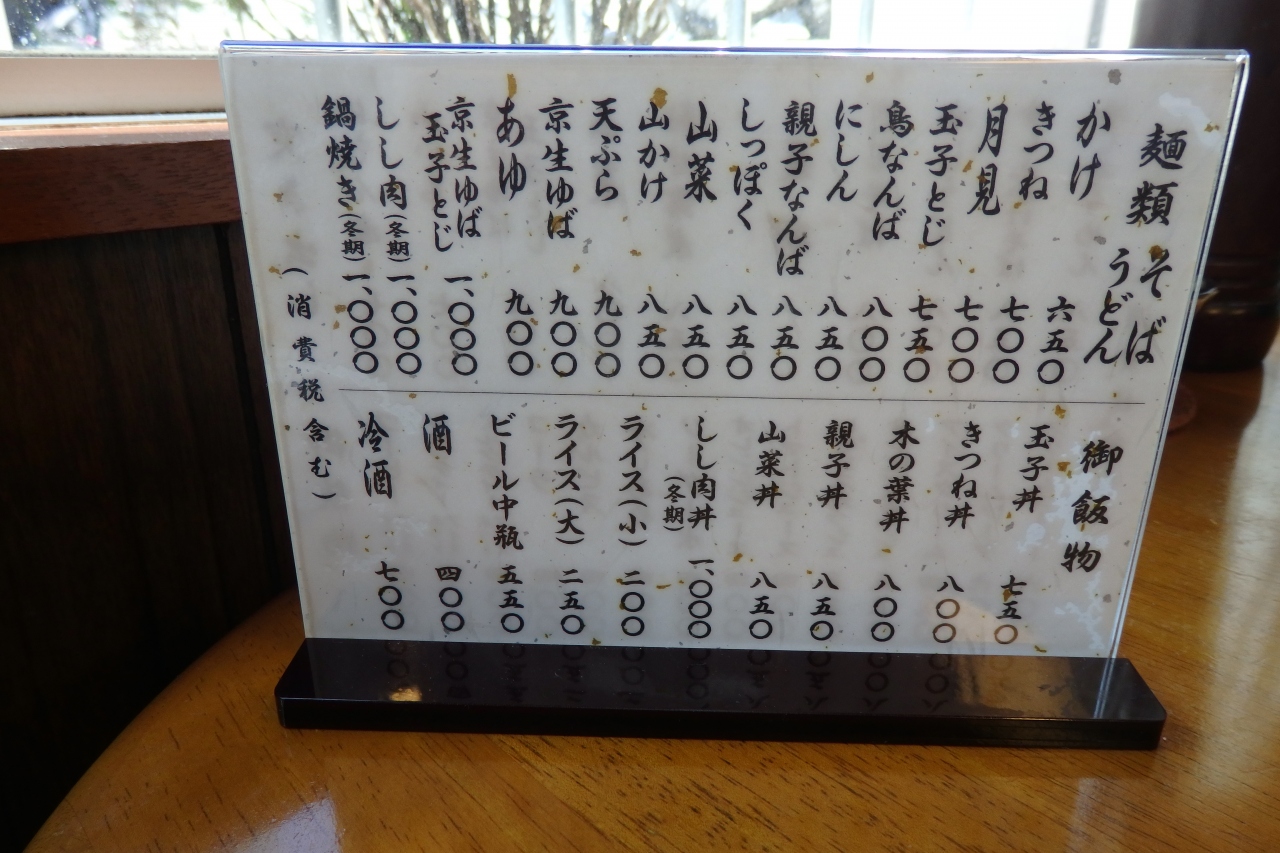 麺類 そば
うどん
かけ 六五〇
きつね 七〇〇
月見 七〇〇
玉子とじ 七五〇
鳥なんば 八〇〇
にしん 八五〇
親子なんば 八五〇
しっぽく 八五〇
山菜 八五〇
山かけ 八五〇
天ぷら 九〇〇
京生ゆば 九〇〇
あゆ 九〇〇
京生ゆば
玉子とじ 一、〇〇〇
しし肉(冬期) 一、〇〇〇
鍋焼き(冬期) 一、〇〇〇
御飯物
玉子丼 七五〇
きつね丼 八〇〇
木の葉丼 八〇〇
親子丼 八五〇
山菜丼 八五〇
しし肉丼 一、〇〇〇
(冬期)
ライス(小) 二〇〇
ライス(大) 二五〇
ビール中瓶 五五〇
酒 四〇〇
冷酒 七〇〇
(消費税含む)